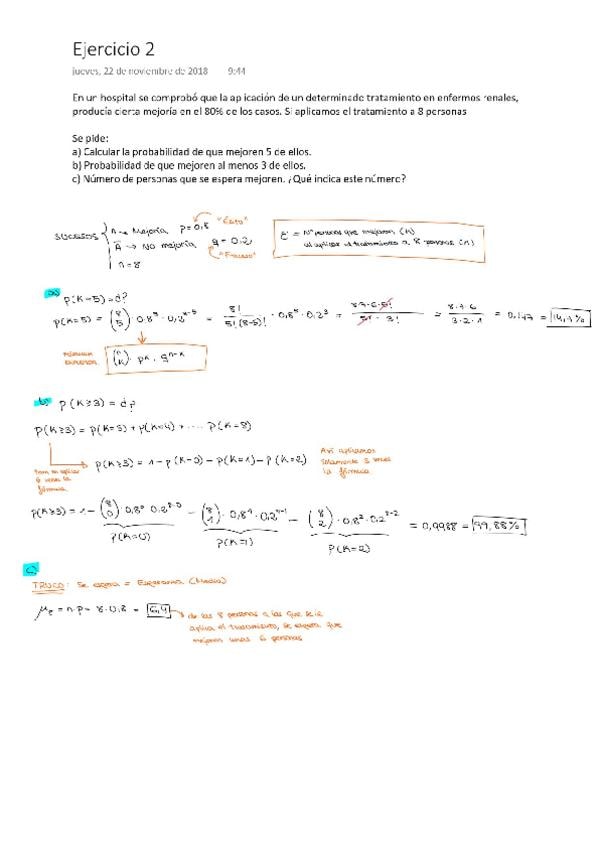 Ejercicio 2
jueves, 22 de noviembre de 2018 9:44
En un hospital se comprobó que la aplicación de un determinado tratamiento en enfermos renales,
producía cierta mejoría en el 80% de los casos. Si aplicamos el tratamiento a 8 personas
Se pide:
a) Calcular la probabilidad de que mejoren 5 de ellos.
b) Probabilidad de que mejoren al menos 3 de ellos.
c) Número de personas que se espera mejoren. ¿Qué indica este número?
"Éxito"
SUCESOS A → Mejoría p=0,8
Ā → No mejoría q=0,2
"Fracaso"
n=8
ε = Nº personas que mejoran (K)
al aplicar el tratamiento a 8 personas (n)
a)
P(K=5)=¿?
P(K=5) = (8 5) · 0,8⁵ · 0,2⁸⁻⁵ = 8! / 5!(8-5)! · 0,8⁵ · 0,2³ = 8·7·6·5! / 5! · 3! = 8·7·6 / 3·2·1 = 0,147 = 14,7%
(n K) · pᴷ · qⁿ⁻ᴷ
b) P(K≥3) = ¿?
P(K≥3) = P(K=3) + P(K=4) + ... P(K=8)
P(K≥3) = 1 - P(K=0) - P(K=1) - P(K=2)
Así aplicamos
solamente 3 veces
la fórmula
6 veces la
fórmula
P(K≥3) = 1 - (8 0) · 0,8⁰ 0,2⁸⁻⁰ - (8 1) · 0,8¹ · 0,2⁸⁻¹ - (8 2) · 0,8² · 0,2⁸⁻² = 0,9988 = 99,88%
P(K=0) P(K=1) P(K=2)
c)
TRUCO: Se espera = Esperanza (Media)
με = n·p = 8·0,8 = 6,4 → de las 8 personas a las que se le
aplica el tratamiento, se espera que
mejoren unas 6 personas